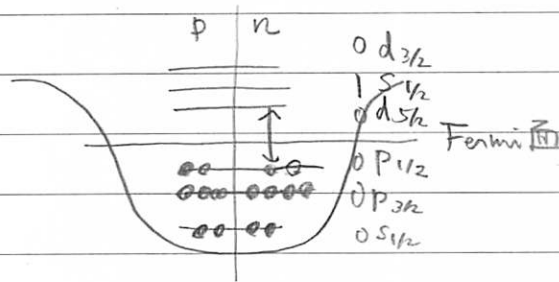 p n
0 d 3/2
1 s 1/2
0 d 5/2
Fermi面
0 p 1/2
0 p 3/2
0 s 1/2